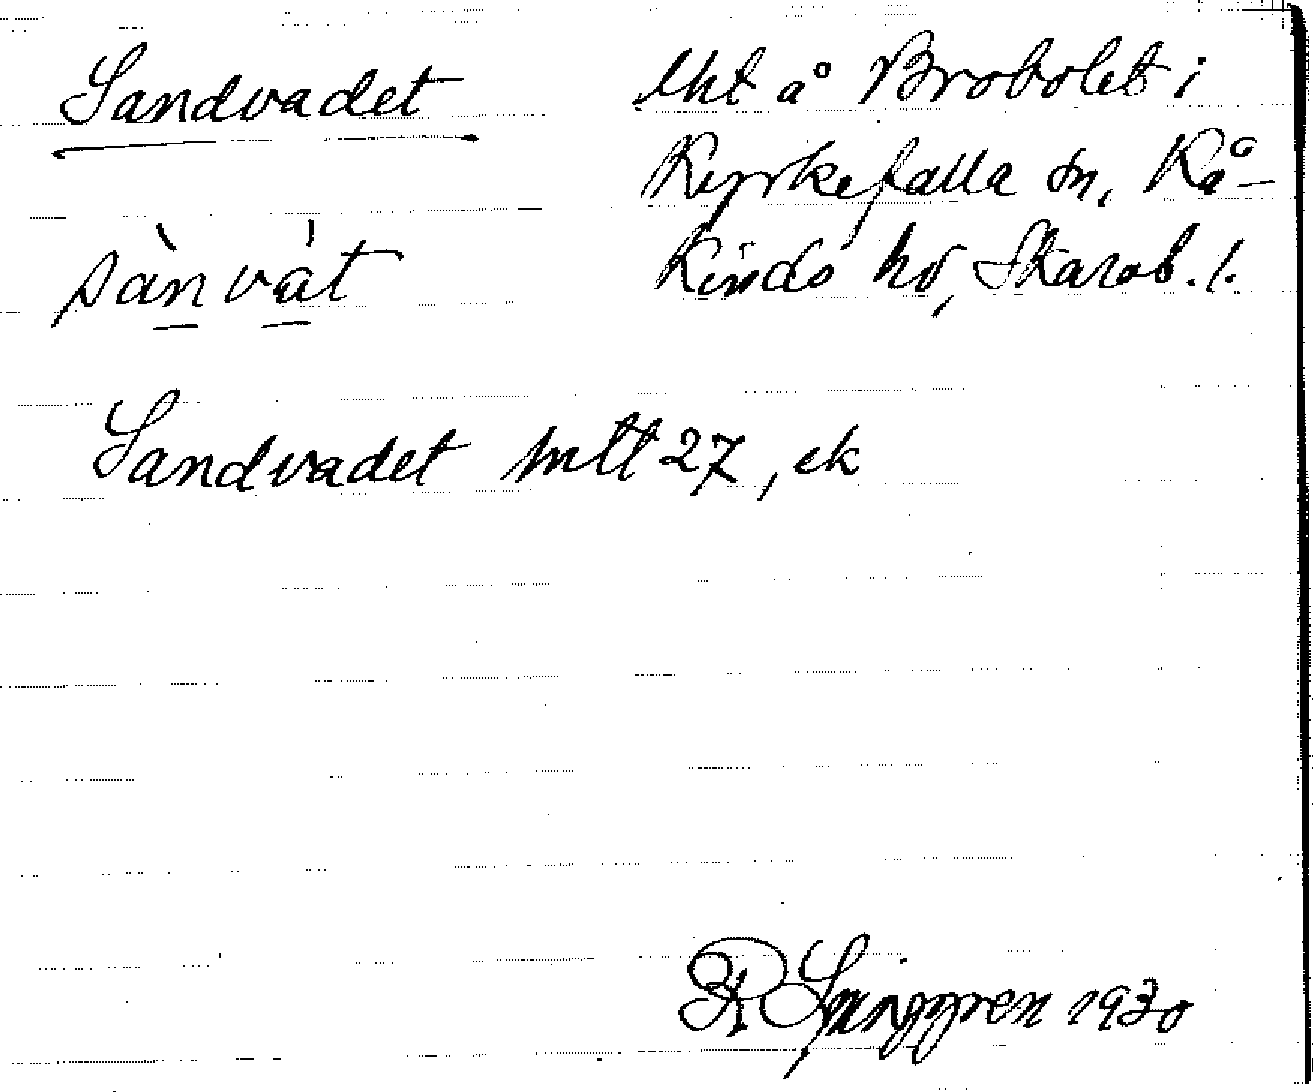 Sandvadet
Uht å Brobolet i
Kyrkefalla sn, Kå-
kinds hd, Skarab. l.
sànvàt
Sandvadet mtt 27, ek
Ljunggren 1930